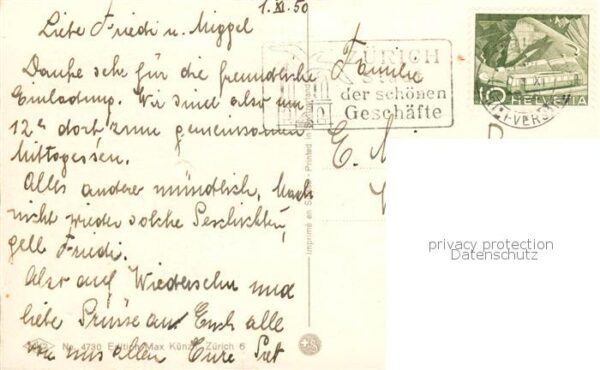 1. XI. 50
Liebe Friedi u. Miggel
Danke sehr für die freundliche
Einladung. Wir sind also um
12h dort zum gemeinsamen
Mittagessen.
Alles andere mündlich. Mach
nicht wieder solche Geschichten,
gell Friedi.
Also auf Wiedersehn und
liebe Grüsse an Euch alle
von uns allen Eure
No. 4730 Edition Max Künzli, Zürich 6
Imprimé en Suisse - Printed
ZÜRICH
der schönen
Geschäfte
10 HELVETIA
Familie
E.
privacy protection
Datenschutz